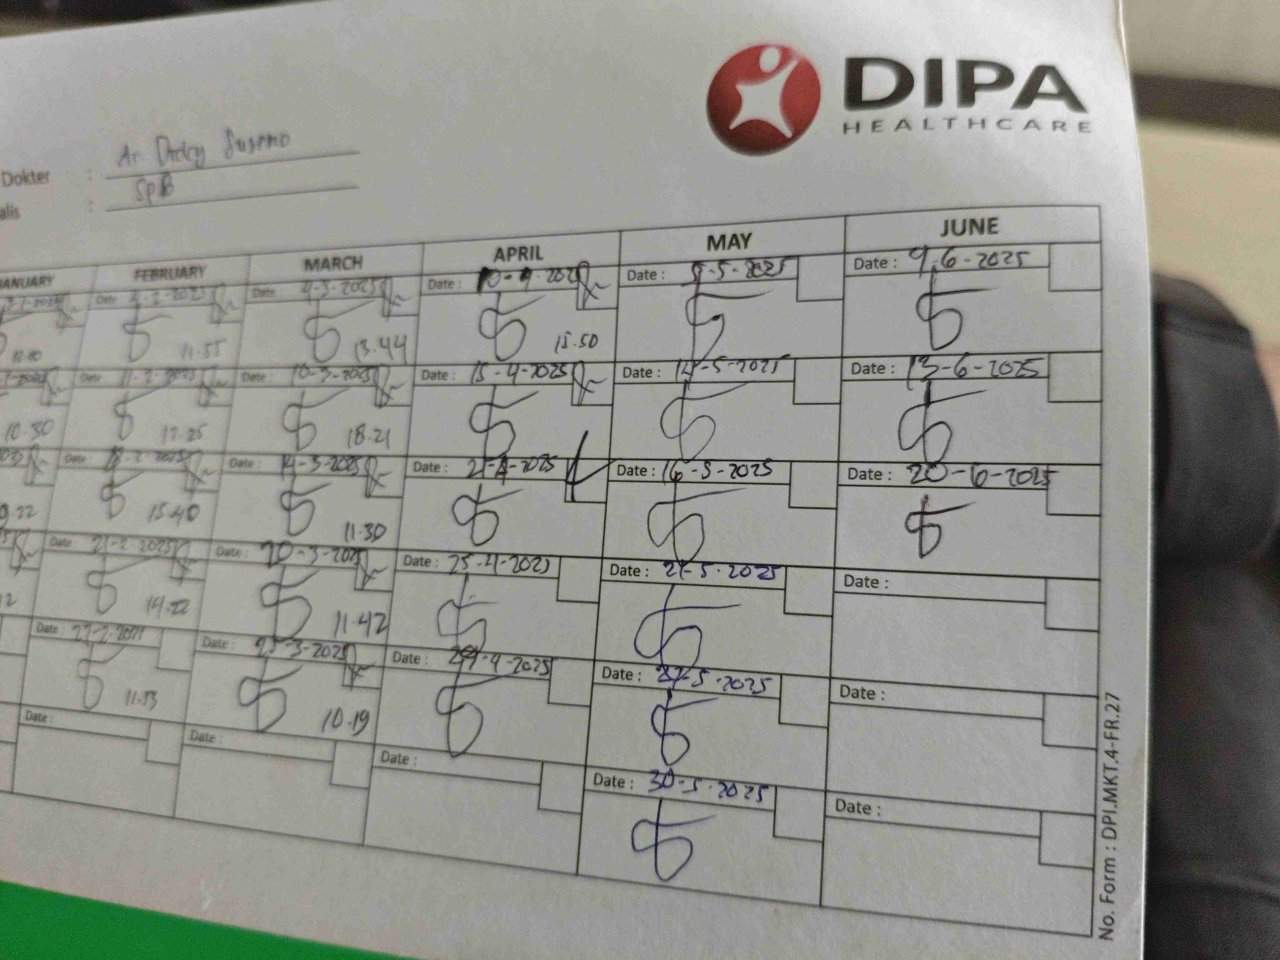 DIPA
HEALTHCARE
Dokter :
SpB
alis :
ANUARY FEBRUARY MARCH APRIL MAY JUNE
Date : 4-2-2025 Date : 4-3-2025 Date : 10-4-2025 Date : 5-5-2025 Date : 9-6-2025
11.55 13.44 15.50
Date : 11-2-2025 Date : 10-3-2025 Date : 15-4-2025 Date : 14-5-2025 Date : 13-6-2025
10.30 17.25 18.21
Date : 18-2-2025 Date : 14-3-2025 Date : 21-4-2025 Date : 16-5-2025 Date : 20-6-2025
9.22 15.40 11.30
Date : 21-2-2025 Date : 20-3-2025 Date : 25-4-2025 Date : 21-5-2025 Date :
12 14.22 11.42
Date : 27-2-2025 Date : 25-3-2025 Date : 29-4-2025 Date : 27-5-2025 Date :
11.53 10.19
Date : Date : Date : Date : 30-5-2025 Date :
No. Form : DPI.MKT.4-FR.27